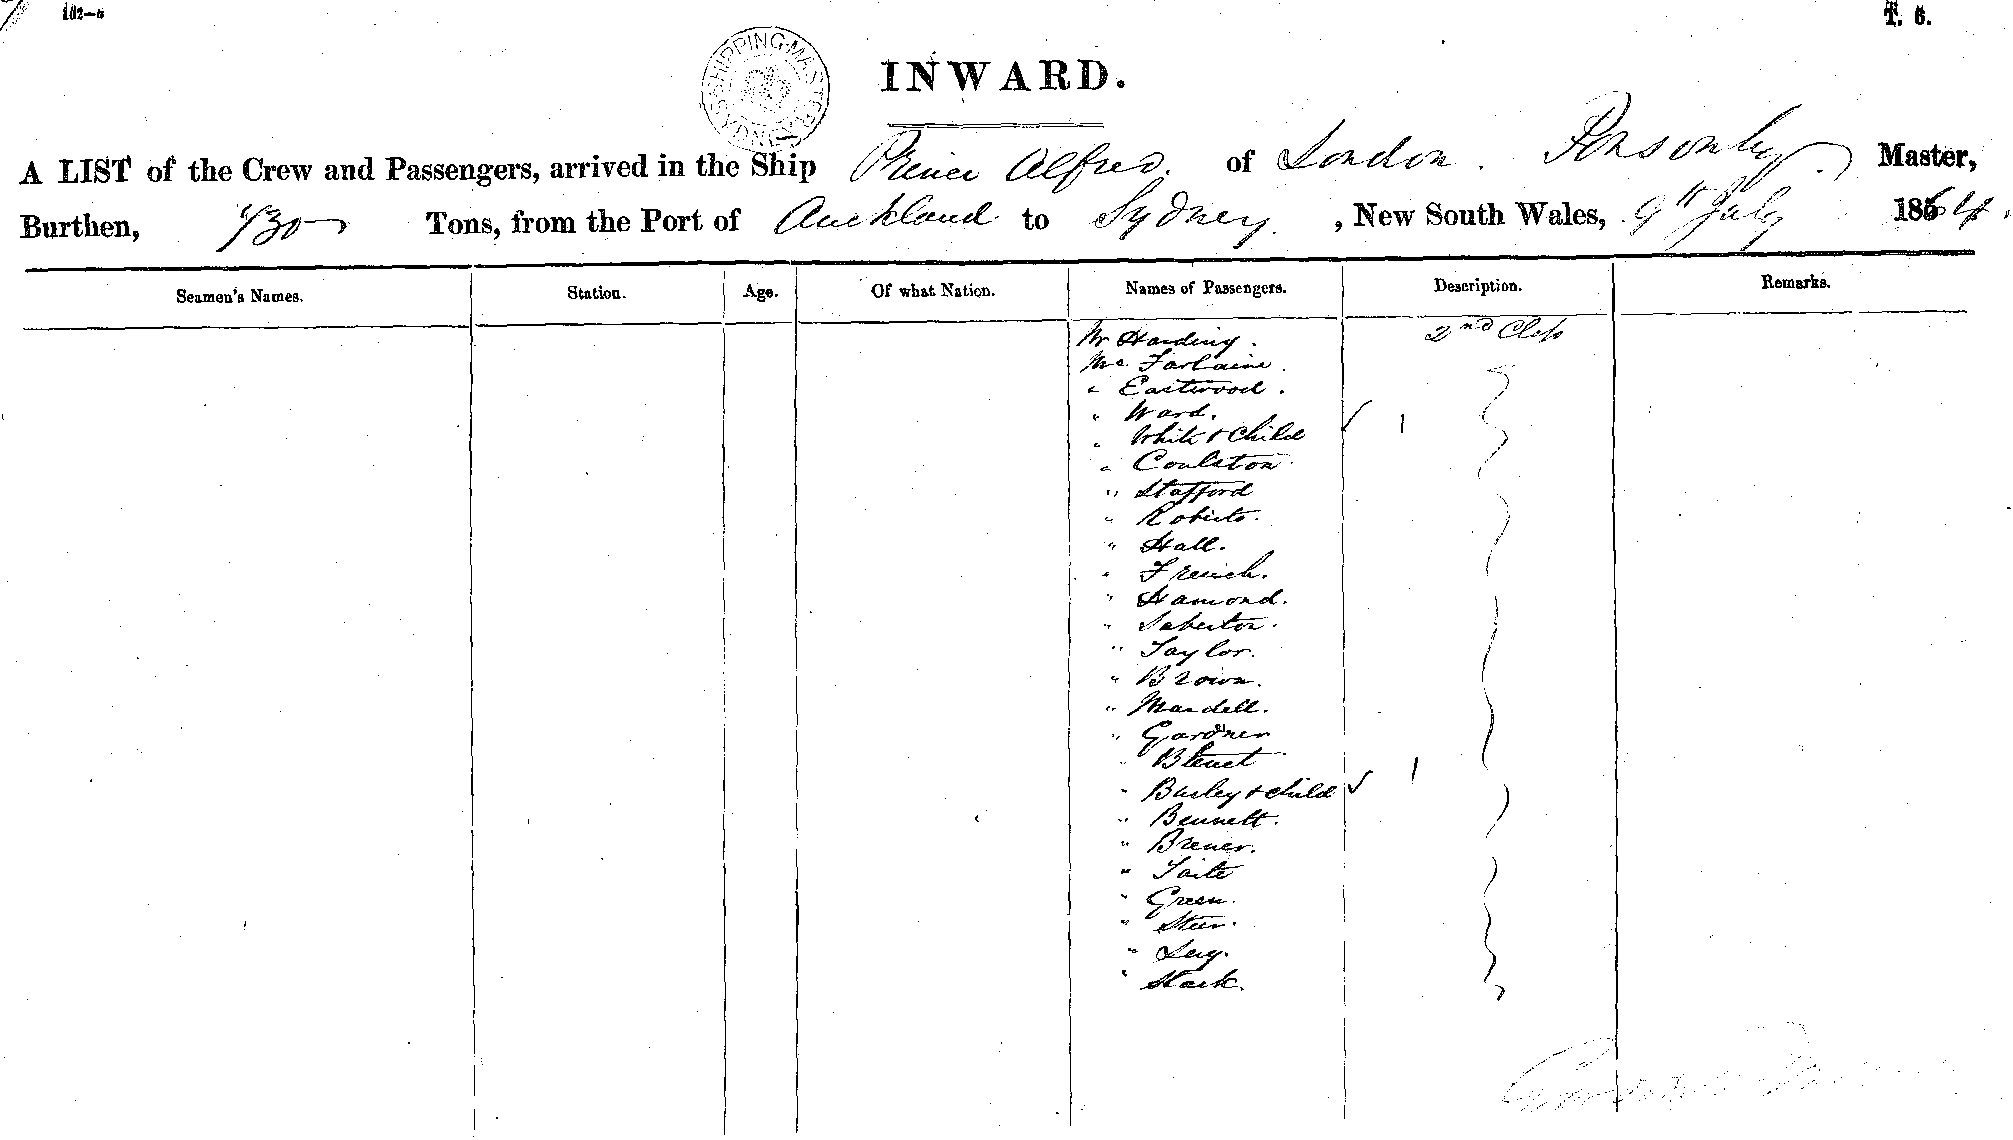 102-6
T. 6.
SHIPPING MASTER'S SYDNEY
INWARD.
A LIST of the Crew and Passengers, arrived in the Ship Prince Alfred. of London. Ponsonby Master,
Burthen, 730 Tons, from the Port of Auckland to Sydney. , New South Wales, 9th July 1864.
Seamen's Names. Station. Age. Of what Nation. Names of Passengers. Description. Remarks.
Mr Harding. 2nd Class
Mc Farlaine.
" Eastwood.
" Ward.
" White & Child ✓ 1
" Coulston.
" Stafford
" Roberts.
" Hall.
" French.
" Hamond.
" Saberton.
" Taylor.
" Brown.
" Mardell.
" Gardner
" Bluet
" Burley & Child ✓ 1
" Bennett.
" Brener.
" Taite
" Green.
" Steer.
" Leg.
" Stark.